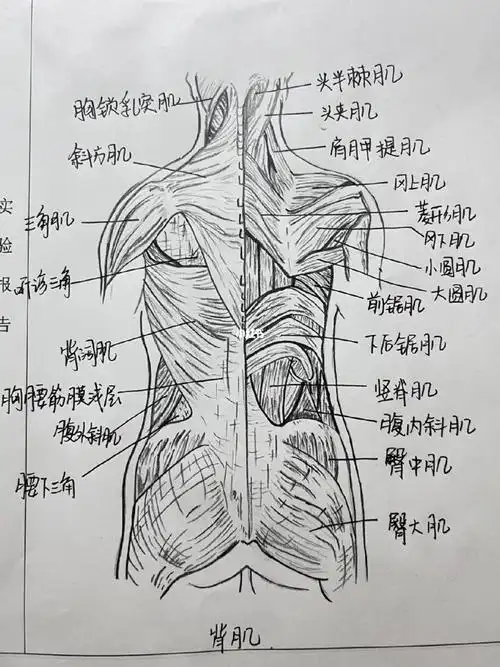 胸锁乳突肌
斜方肌
三角肌
听诊三角
背阔肌
胸腰筋膜浅层
腹外斜肌
腰下三角
头半棘肌
头夹肌
肩胛提肌
冈上肌
菱形肌
冈下肌
小圆肌
大圆肌
前锯肌
下后锯肌
竖脊肌
腹内斜肌
臀中肌
臀大肌
背肌
实
验
报
告